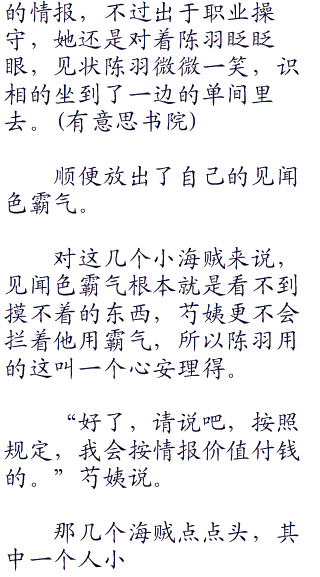 的情报，不过出于职业操
守，她还是对着陈羽眨眨
眼，见状陈羽微微一笑，识
相的坐到了一边的单间里
去。(有意思书院)
顺便放出了自己的见闻
色霸气。
对这几个小海贼来说，
见闻色霸气根本就是看不到
摸不着的东西，芍姨更不会
拦着他用霸气，所以陈羽用
的这叫一个心安理得。
“好了，请说吧，按照
规定，我会按情报价值付钱
的。”芍姨说。
那几个海贼点点头，其
中一个人小